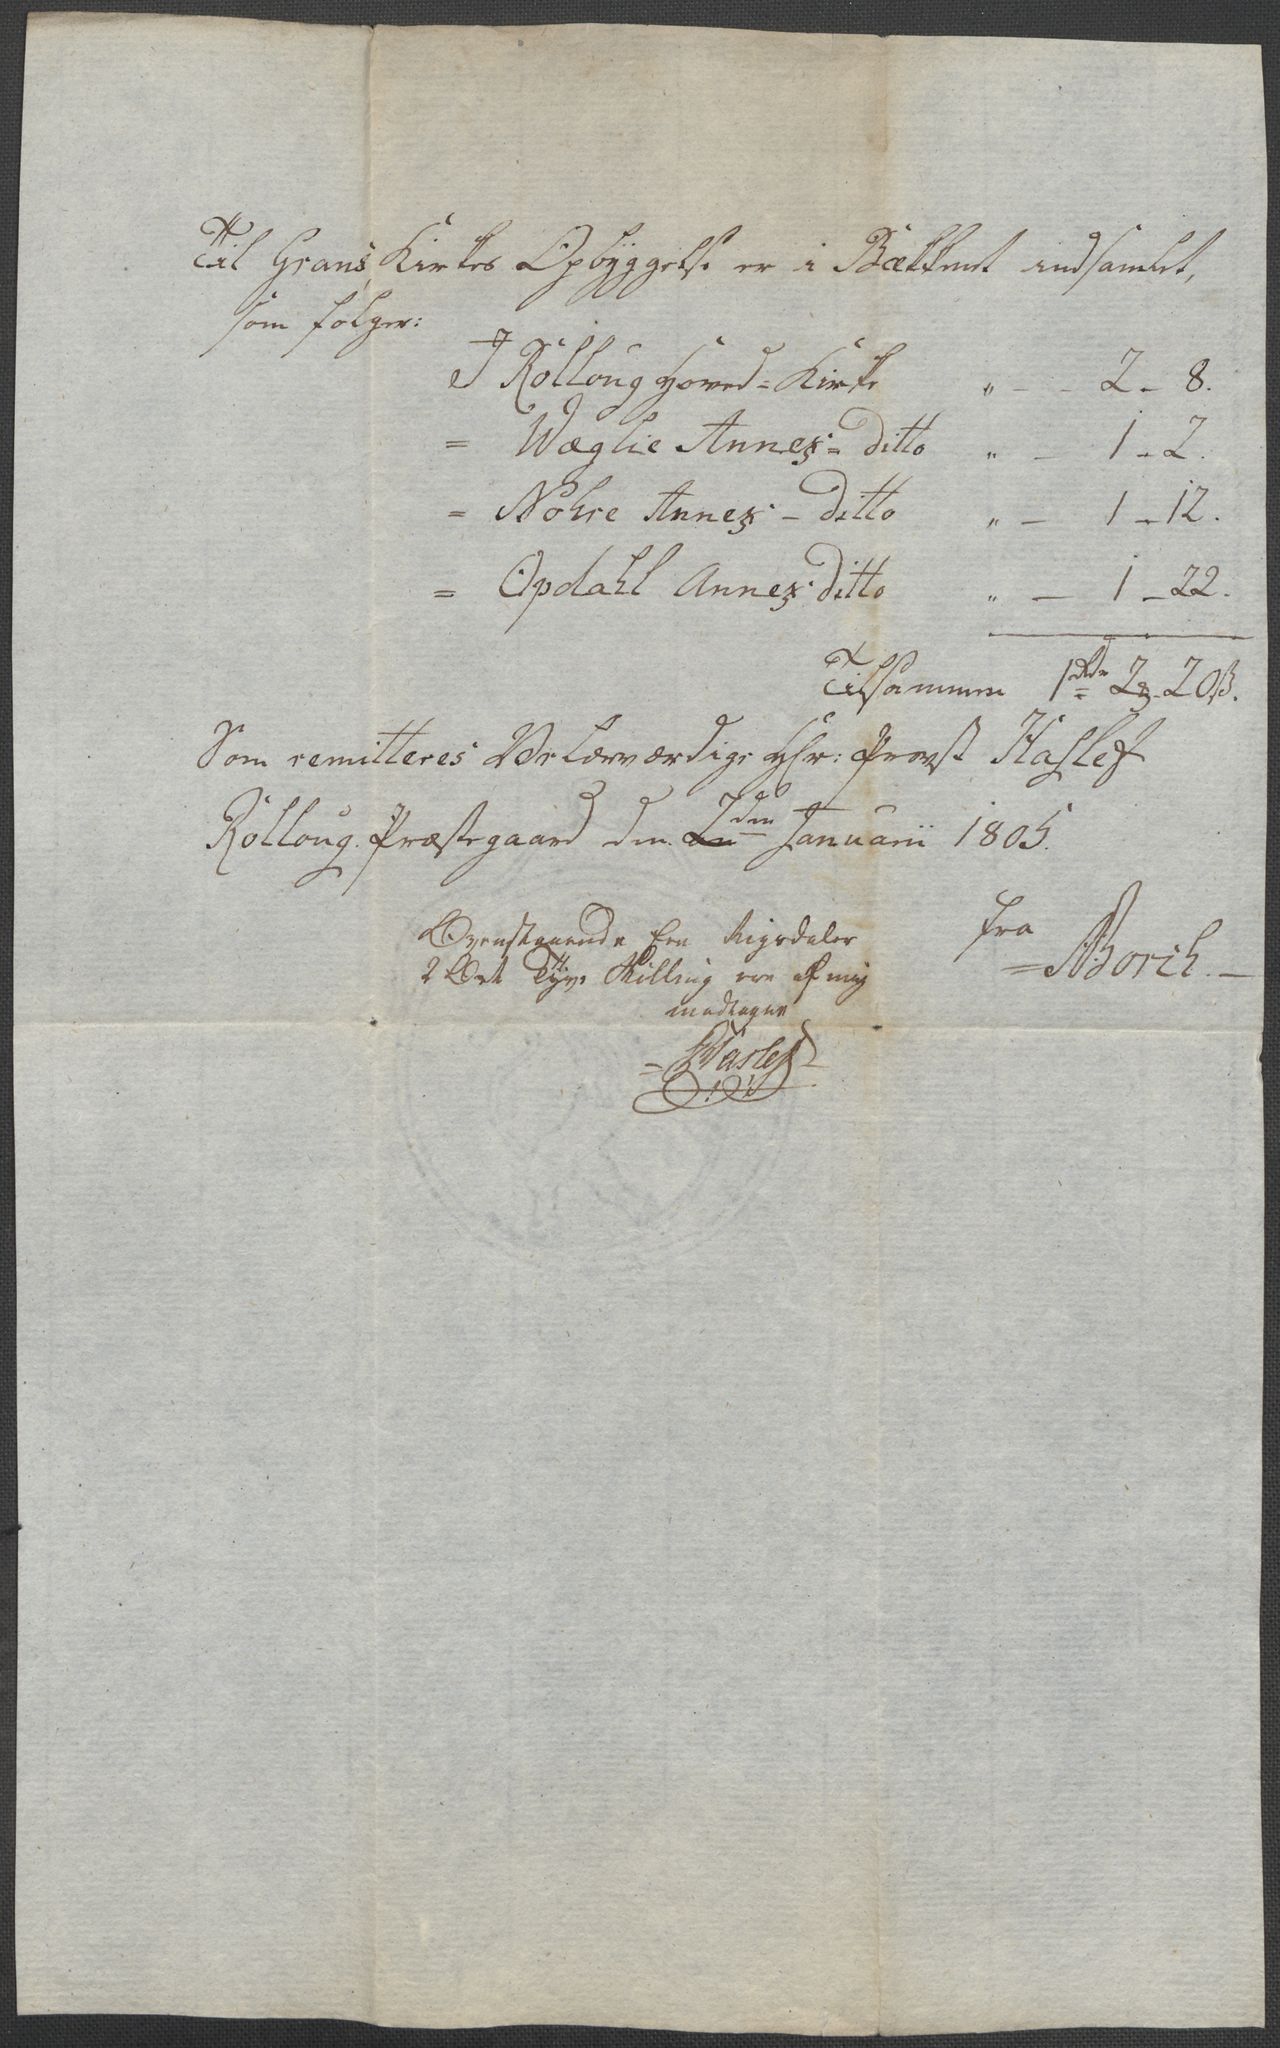 Til Grans Kirkes Opbyggelse er i Bækkent indsamlet,
som følger:
I Rolloug Hoved=Kirke " — 2 – 8.
= Wæglie Annex= ditto " — 1 – 2.
= Nohre Annex – ditto " — 1 – 12.
= Opdahl Annex ditto " — 1 – 22.
Tilsammen 1rdr 2 – 20ß.
Som remitteres Velærværdige Hr: Provst Haslef
Rolloug Præstegaard den 7den Januarii 1805.
fra
= Borch. —
Ovenstaaende Een Rigsdaler
2 Ort Tyve Skilling ere af mig
modtagne
– Haslef –